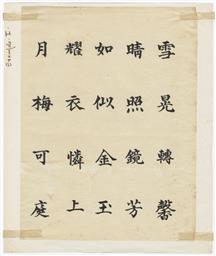 月耀如晴雪
梅花似照星
可憐金鏡轉
庭上玉芳馨